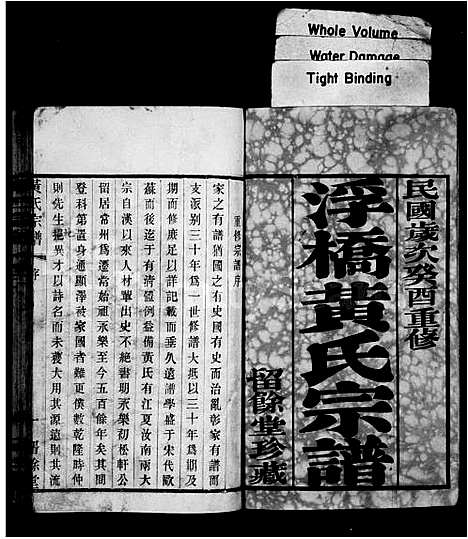 Whole Volume
Water Damage
Tight Binding
民國歲次癸酉重修
浮橋黃氏宗譜
留餘堂珍藏
重修宗譜序
家之有譜猶國之有史國有史而治亂彰家有譜而
支派別三十年爲一世修譜大抵以三十年爲期及
期而修庶足以詳記載而垂久遠譜學盛于宋代歐
蘇而後迄于有清體例益備黃氏有江夏汝南兩大
宗自漢以來人材輩出史不絕書明永樂初松軒公
留居常州爲遷常始祖永樂至今五百餘年矣其間
登科第置身通顯澤被家國者難更僕數乾隆時仲
則先生挺異才以詩名而未獲大用其源遠則其流
黃氏宗譜 序 一 留餘堂